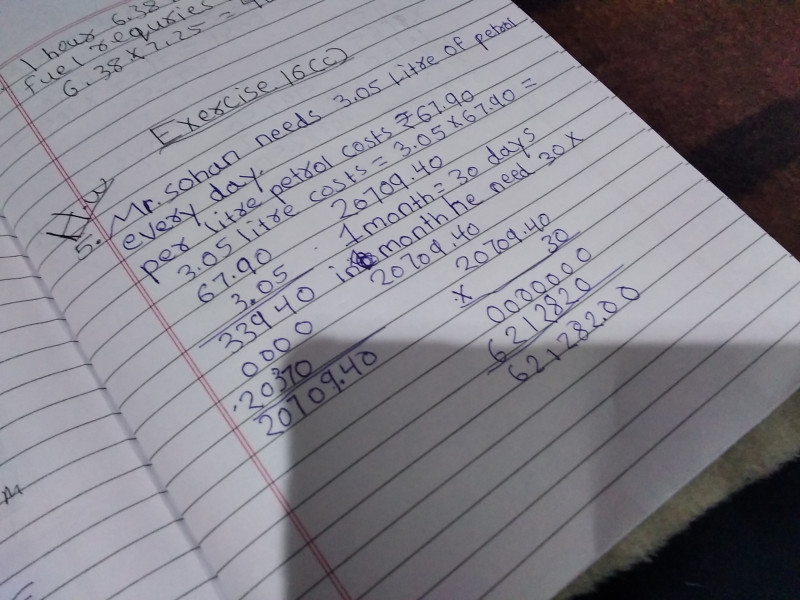 1 hour 6.38
fuel requries
6.38x7.25 =
Exercise 16(c)
H.W
5. Mr. Sohan needs 3.05 litre of petrol
every day.
per litre petrol costs ₹67.90
3.05 litre costs = 3.05x67.90 =
20709.40
67.90
3.05
33940
0000
20370
20709.40
1 month = 30 days
in month he need 30x
20709.40
20709.40
x 30
0000000
6212820
62128200